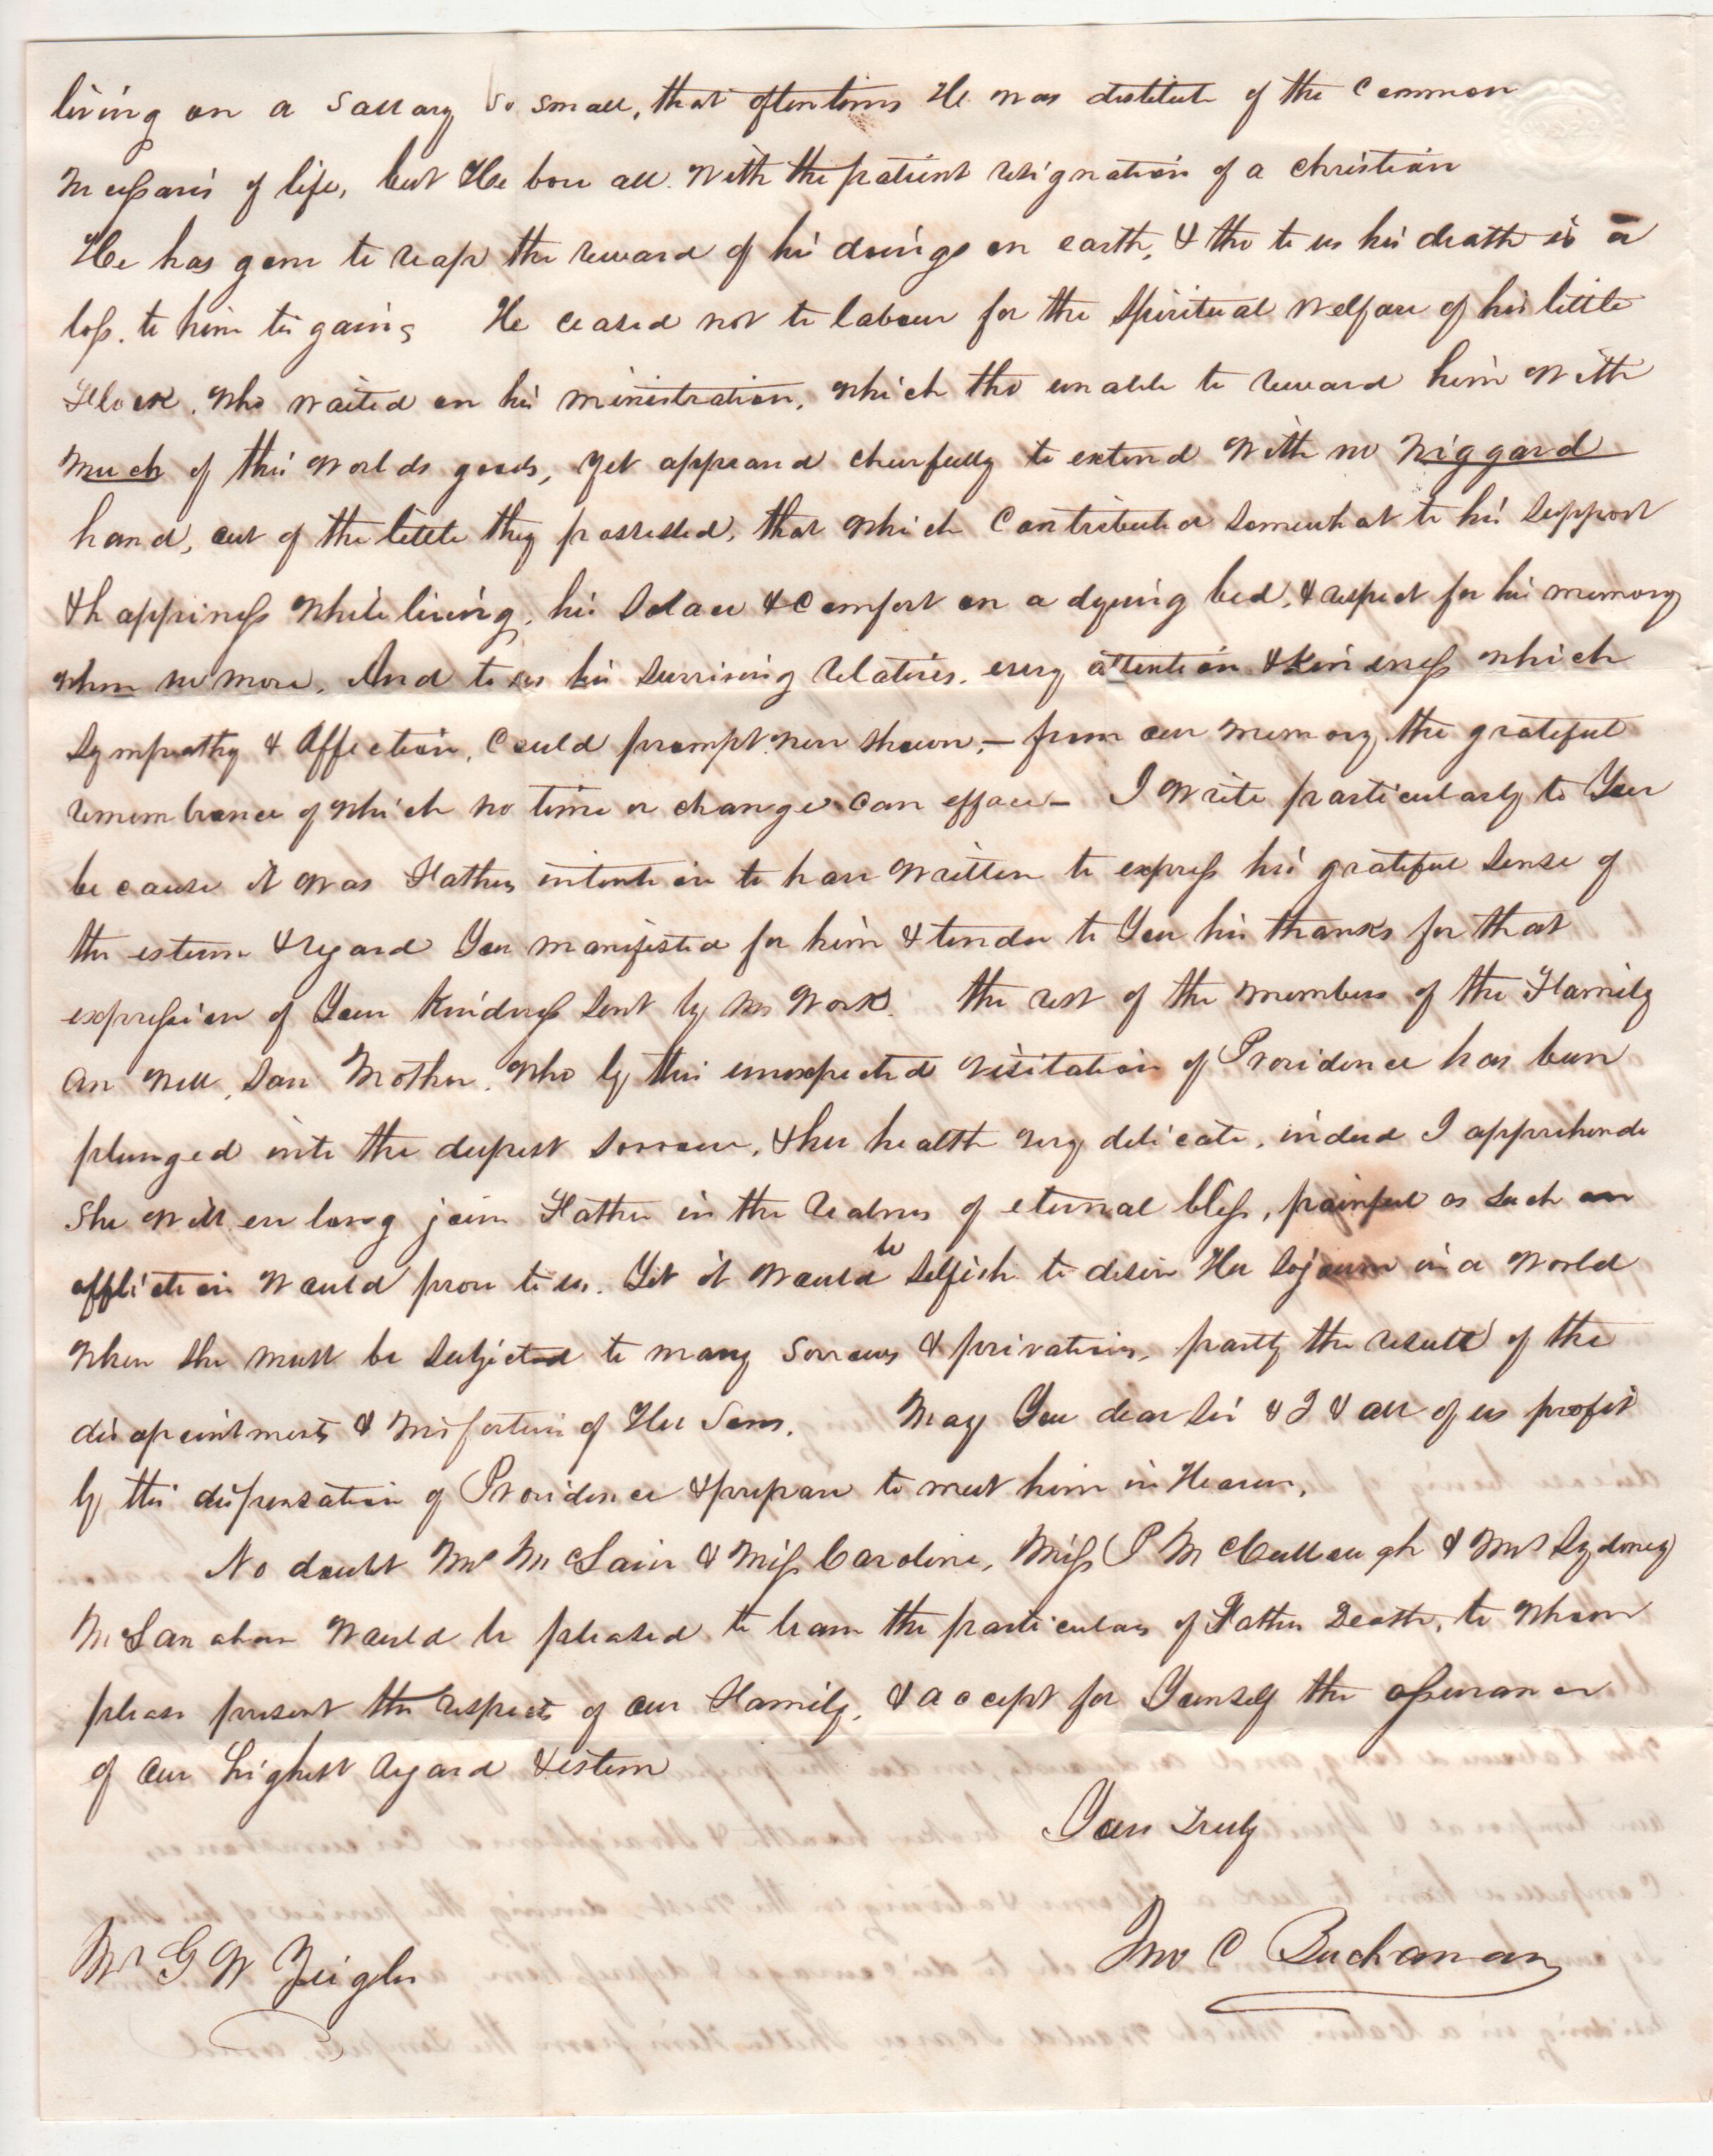 living on a Sallary so small, that oftentimes He was destitute of the Common
necessaries of life, but He bore all with the patient resignation of a christian
He has gone to reap the reward of his doings on earth, & tho to us his death is a
loss. to him tis gain, He ceased not to labour for the Spiritual welfare of his little
Flock. who waited on his ministration, which tho unable to reward him with
much of this worlds goods, yet appeared cheerfully to extend with no niggard
hand, out of the little they possessed, that which Contributed Somewhat to his Support
& happiness while living, his Solace & Comfort on a dyeing bed, & respect for his memory
when no more, And to us his Surviving relatives. every attention & kindness which
Sympathy & Affection, Could prompt were shown, — from our memory the grateful
remembrance of which no time or change can efface — I write particularly to You
because it was Fathers intention to have written to express his grateful Sense of
the esteem & regard You manifested for him & tender to You his thanks for that
expression of Your kindness Sent by Mr Work. The rest of the members of the Family
are well, Save Mother, who by this unexpected visitation of Providence has been
plunged into the deepest Sorrow, & her health very delicate, indeed I apprehende
She will ere long join Father in the realms of eternal bliss, painful as Such an
affliction would prove to us. Yet it would be Selfish to desire Her Sojourn in a world
where she must be Subjected to many Sorrows & privations, partly the result of the
disapointments & misfortunes of Her Sons. May You dear Sir & I & all of us profit
by this dispensation of Providence & prepare to meet him in Heaven,
No doubt Mrs McLain & Miss Caroline, Miss P McCullough & Mrs Sydney
McLanahan would be pleased to learn the particulars of Fathers Death, to whom
please present the respects of our Family, & accept for Yourself the assurance
of our highest regard & esteem
Yours Truly
Jno C Buchanan
Mr G W Zeigler